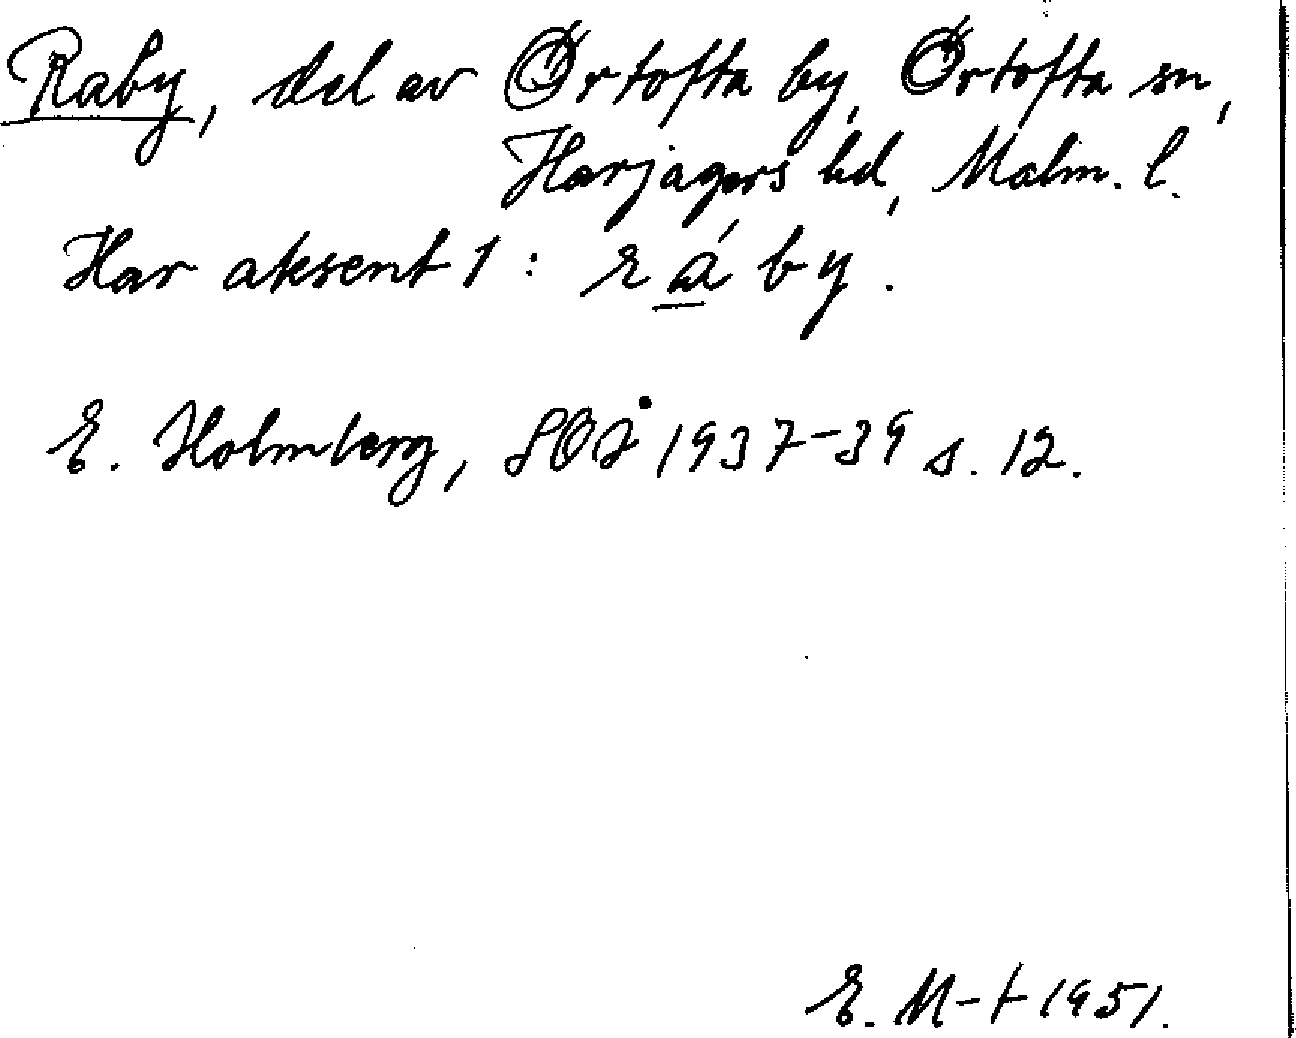 Raby, del av Örtofta by, Örtofta sn,
Harjagers hd, Malm. l.
Har aksent 1: ráby.
E. Holmberg, SOÅ 1937-39 s. 12.
E. M-t 1951.